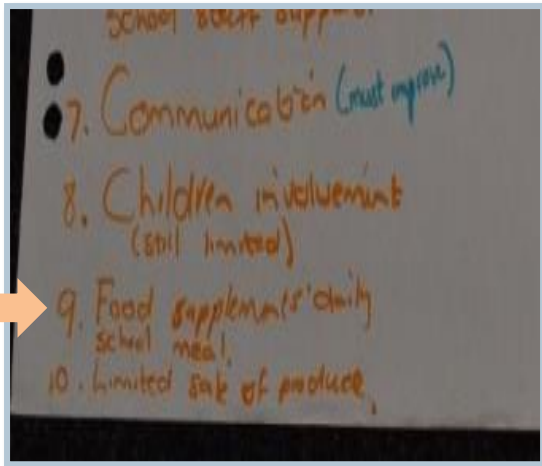 School staff support
7. Communication (must improve)
8. Children involvement
(still limited)
9. Food supplements daily
school meal.
10. Limited sale of produce.